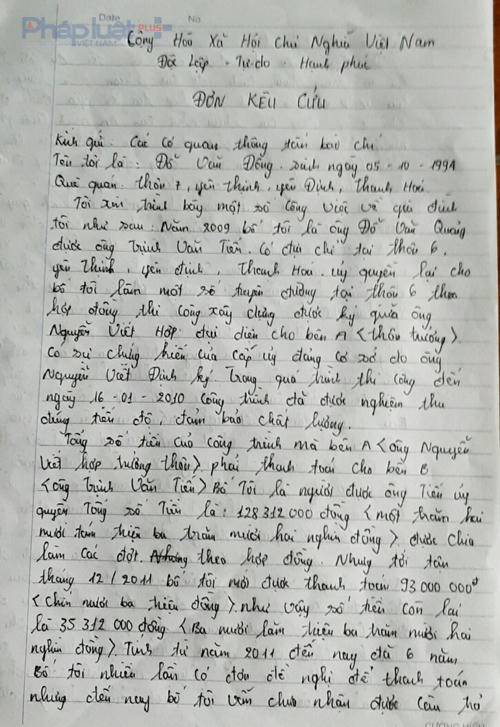 Pháp luật PLUS
VIỆT NAM
Date No
Cộng Hòa Xã Hội Chủ Nghĩa Việt Nam
Độc Lập - Tự do - Hạnh phúc
ĐƠN KÊU CỨU
Kính gửi: Các cơ quan thông tấn báo chí
Tên tôi là: Đỗ Văn Đông. sinh ngày 05-10-1994
Quê quán: thôn 7, yên thịnh, yên Định, thanh Hoá
Tôi xin trình bày một số công việc về gia đình
tôi như sau: Năm 2009 bố tôi là ông Đỗ Văn Quang
được ông Trịnh Văn Tiến. Có địa chỉ tại thôn 6,
yên thịnh, yên định, Thanh Hoá. ủy quyền lại cho
bố tôi làm một số tuyến đường tại thôn 6 theo
hợp đồng thi công xây dựng được ký giữa ông
Nguyễn Viết Hợp đại diện cho bên A <thôn trưởng>.
Có sự chứng kiến của cấp ủy đảng cơ sở do ông
Nguyễn Viết Đinh ký. Trong quá trình thi công đến
ngày 16-01-2010 công trình đã được nghiệm thu
đúng tiến độ, đảm bảo chất lượng.
Tổng số tiền của công trình mà bên A <ông Nguyễn
Viết hợp trưởng thôn> phải thanh toán cho bên B
<ông Trịnh Văn Tiến> Bố Tôi là người được ông Tiến ủy
quyền Tổng số Tiền là: 128 312 000 đồng <một trăm hai
mươi tám triệu ba trăm mười hai nghìn đồng> được chia
làm các đợt. theo hợp đồng. Nhưng tới tận
tháng 12/2011 bố tôi mới được thanh toán 93 000 000đ
<Chín mươi ba triệu đồng>. như vậy số tiền còn lại
là 35 312 000 đồng <Ba mươi lăm triệu ba trăm mười hai
nghìn đồng>. Tính từ năm 2011 đến nay đã 6 năm
Bố tôi nhiều lần có đơn đề nghị để thanh toán
nhưng đến nay bố tôi vẫn chưa nhận được câu trả